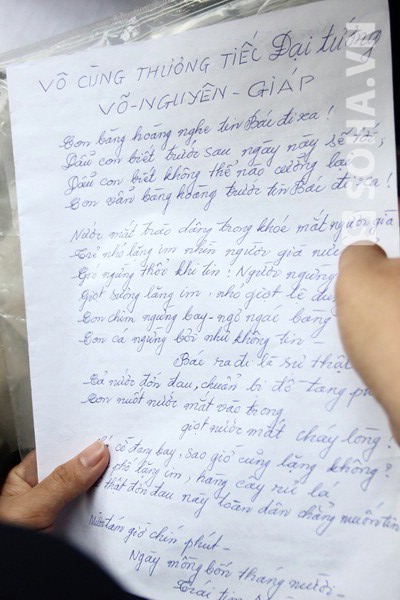 SOHA.VN
VÔ CÙNG THƯƠNG TIẾC Đại tướng
VÕ-NGUYÊN-GIÁP
Con bàng hoàng nghe tin Bác đi xa!
Dẫu con biết trước sau ngày này sẽ tới,
Dẫu con biết không thể nào cưỡng lại
Con vẫn bàng hoàng trước tin Bác đi xa!
Nước mắt trào dâng trong khóe mắt người già
Trẻ nhỏ lặng im nhìn người già nức
Gió ngừng thổi khi tin: Người ngừng
Giọt sương lặng im, như giọt lệ
Con chim ngừng bay- ngơ ngác bàng
Con cá ngừng bơi như không tin-
Bác ra đi là sự thật
Cả nước đớn đau, chuẩn bị đồ tang
Con nuốt nước mắt vào trong
giọt nước mắt cháy lòng!
cờ đang bay, sao giờ cũng lặng không?
phố lặng im, hàng cây rủ lá
thật đớn đau này toàn dân chẳng muốn tin
Mười tám giờ chín phút-
Ngày mồng bốn tháng mười-
Trái tim